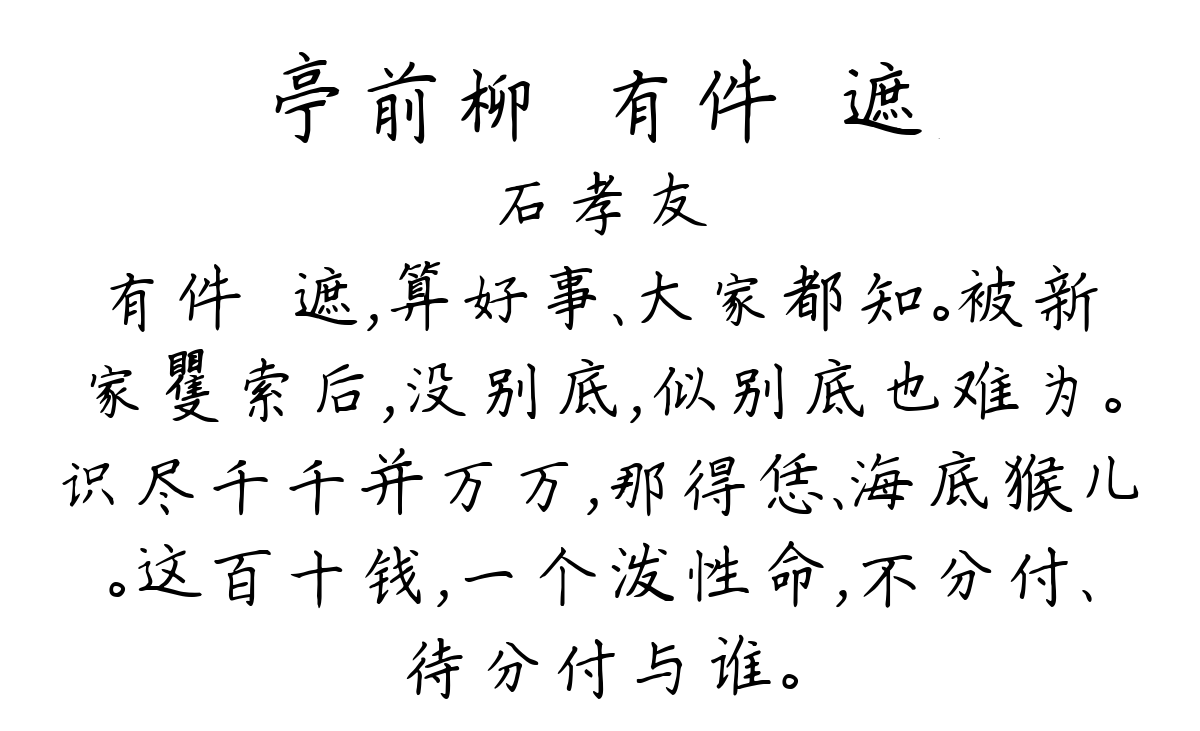 亭前柳 有件 遮
石孝友
有件 遮,算好事、大家都知。被新
家矍索后,没别底,似别底也难为。
识尽千千并万万,那得恁、海底猴儿
。这百十钱,一个泼性命,不分付、
待分付与谁。